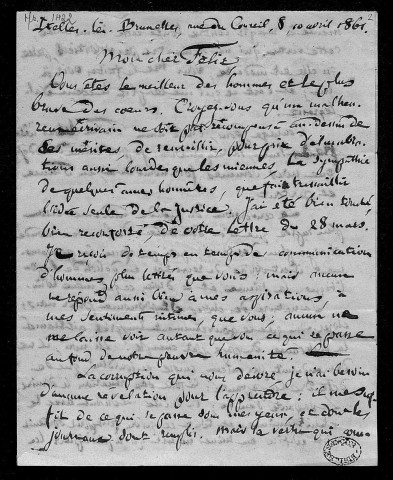 Ixelles-lès-Bruxelles, rue du Conseil, 8, 10 avril 1861.
2
Mon cher Félix
Vous êtes le meilleur des hommes et le plus
brave des cœurs. Croyez-vous qu'un malheu-
reux écrivain ne soit pas récompensé au-dessus de
ses mérites, de recueillir, pour prix d'élucubra-
tions aussi lourdes que les miennes, la sympathie
de quelques âmes honnêtes, que fait tressaillir
l'idée seule de la Justice. J'ai été bien touché,
bien reconforté, de votre lettre du 28 mars.
Je reçois de temps en temps des communications
d'hommes plus lettrés que vous : mais aucun
ne répond aussi bien à mes aspirations, à
mes sentiments intimes, que vous; aucun ne
me laisse voir autant que vous ce qui se passe
au fond de notre pauvre humanité.
La corruption qui nous dévore, je n'ai besoin
d'aucune révélation pour l'apprendre : il me suf-
fit de ce qui se passe sous mes yeux, et dont les
journaux sont remplis. Mais la vertu qui